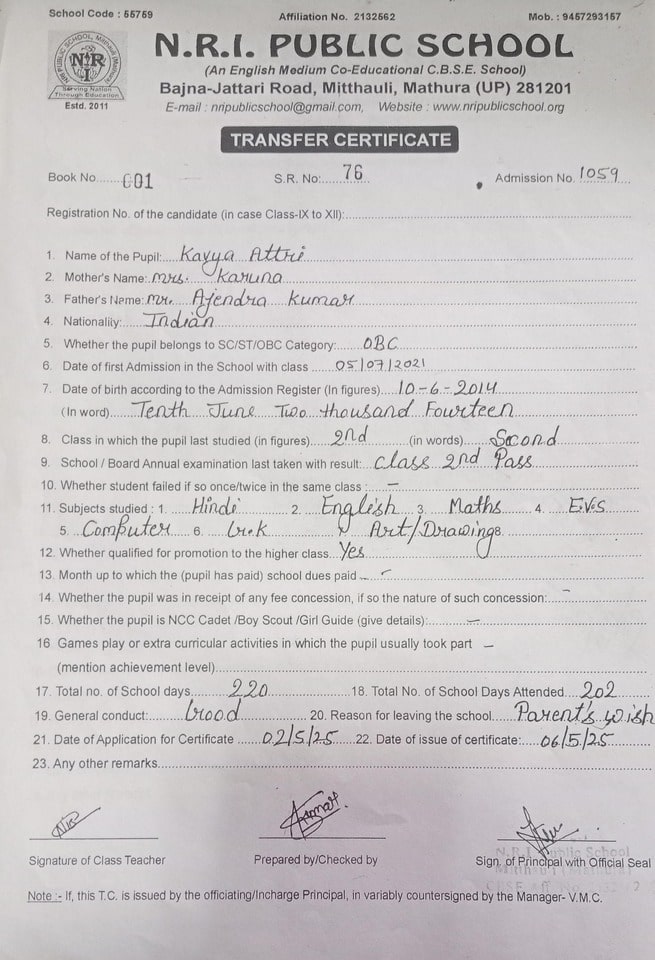 School Code : 55759 Affiliation No. 2132562 Mob. : 9457293157
NRI PUBLIC SCHOOL, Mitthauli (Mathura)
NRI
Serving Nation
Through Education
Estd. 2011
N.R.I. PUBLIC SCHOOL
(An English Medium Co-Educational C.B.S.E. School)
Bajna-Jattari Road, Mitthauli, Mathura (UP) 281201
E-mail : nripublicschool@gmail.com, Website : www.nripublicschool.org
TRANSFER CERTIFICATE
Book No. 001 S.R. No: 76 Admission No. 1059
Registration No. of the candidate (in case Class-IX to XII):
1. Name of the Pupil: Kavya Attri
2. Mother's Name: Mrs. Karuna
3. Father's Name: Mr. Ajendra Kumar
4. Nationality: Indian
5. Whether the pupil belongs to SC/ST/OBC Category: OBC
6. Date of first Admission in the School with class 05/07/2021
7. Date of birth according to the Admission Register (In figures) 10-6-2014
(In word) Tenth June Two thousand Fourteen
8. Class in which the pupil last studied (in figures) 2nd (in words) Second
9. School / Board Annual examination last taken with result: Class 2nd Pass
10. Whether student failed if so once/twice in the same class : –
11. Subjects studied : 1. Hindi 2. English 3. Maths 4. E.V.S
5. Computer 6. G.K Art/Drawing 8.
12. Whether qualified for promotion to the higher class. Yes
13. Month up to which the (pupil has paid) school dues paid –
14. Whether the pupil was in receipt of any fee concession, if so the nature of such concession: –
15. Whether the pupil is NCC Cadet /Boy Scout /Girl Guide (give details): –
16. Games play or extra curricular activities in which the pupil usually took part –
(mention achievement level)
17. Total no. of School days 220 18. Total No. of School Days Attended 202
19. General conduct: Good 20. Reason for leaving the school Parent's wish
21. Date of Application for Certificate 02/5/25 22. Date of issue of certificate: 06/5/25
23. Any other remarks
Signature of Class Teacher Prepared by/Checked by Sign. of Principal with Official Seal
N.R.I. Public School
Note :- If, this T.C. is issued by the officiating/Incharge Principal, in variably countersigned by the Manager- V.M.C.